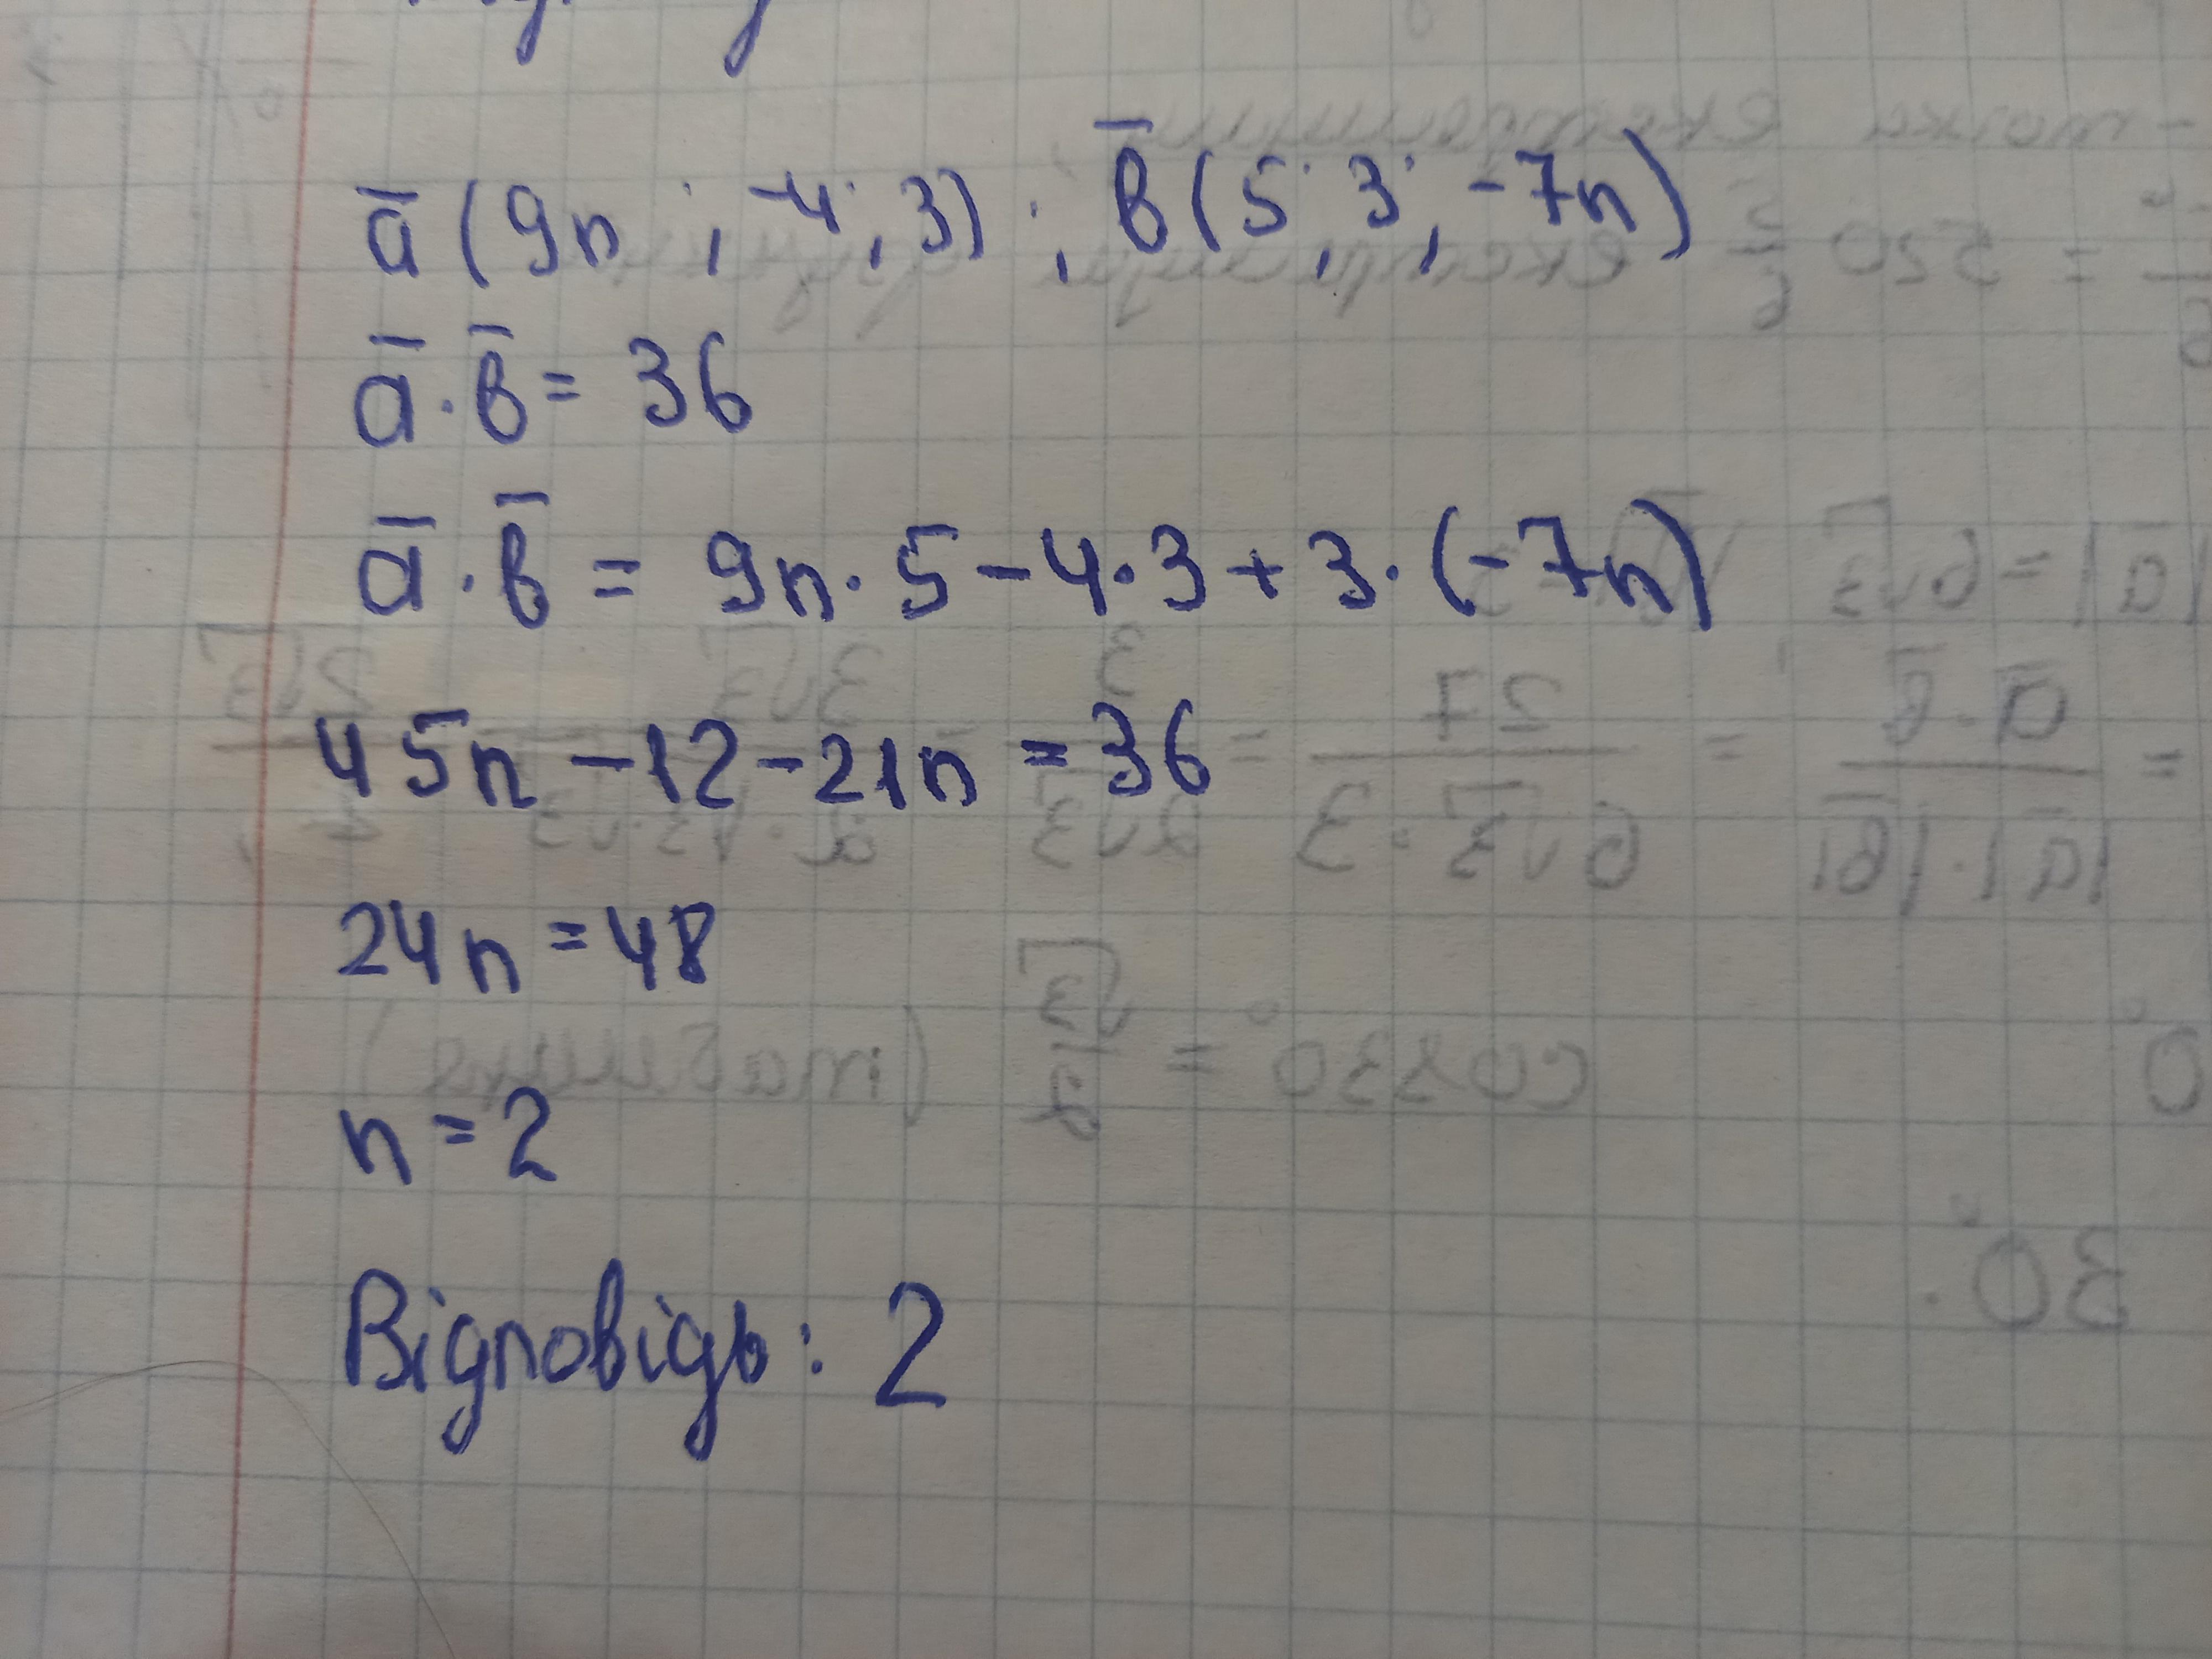 a̅ (9n ; -4 ; 3) ; b̅ (5 ; 3 ; -7n)
a̅ · b̅ = 36
a̅ · b̅ = 9n · 5 - 4 · 3 + 3 · (-7n)
45n - 12 - 21n = 36
24n = 48
n = 2
Відповідь: 2